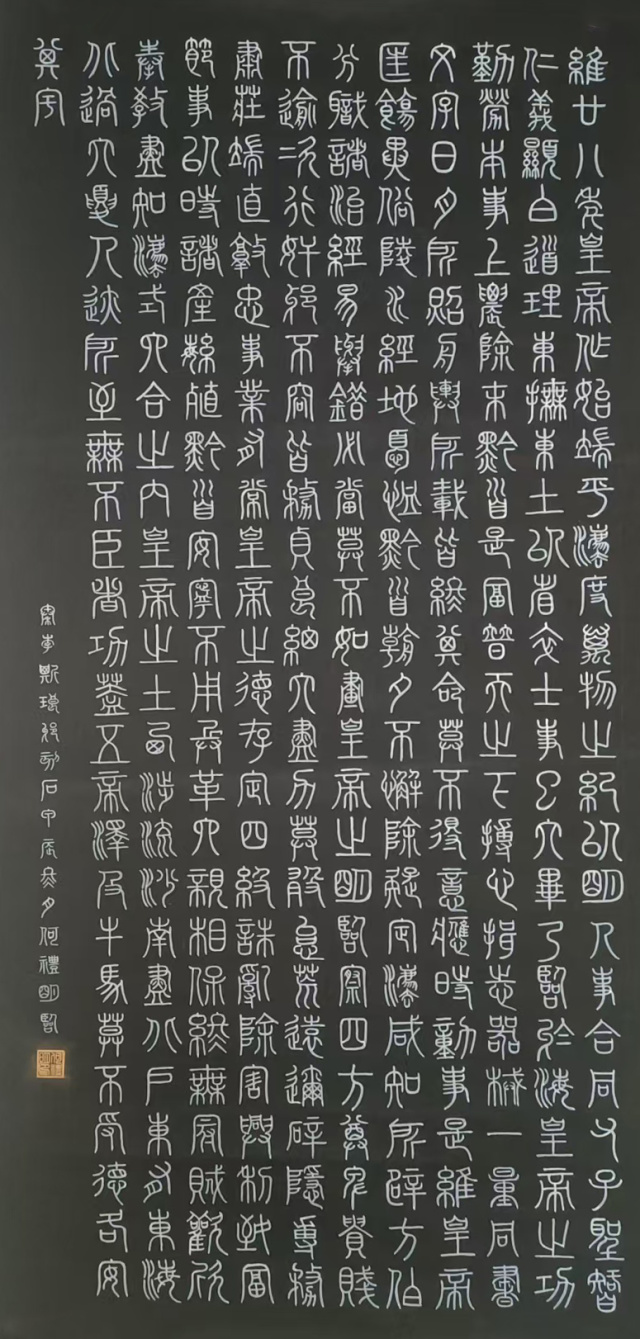 維廿八年皇帝作始端平灋度萬物之紀以明人事合同父子聖智
仁義顯白道理東撫東土以省卒士事已大畢乃臨於海皇帝之功
勤勞本事上農除末黔首是富普天之下摶心揖志器械一量同書
文字日月所照舟輿所載皆終其命莫不得意應時動事是維皇帝
匡飭異俗陵水經地憂恤黔首朝夕不懈除疑定灋咸知所辟方伯
分職諸治經易舉錯必當莫不如畫皇帝之明臨察四方尊卑貴賤
不逾次行奸邪不容皆務貞良細大盡力莫敢怠荒遠邇辟隱專務
肅莊端直敦忠事業有常皇帝之德存定四極誅亂除害興利致富
節事以時諸產繁殖黔首安寧不用兵革六親相保終無寇賊歡欣
奉教盡知灋式六合之內皇帝之土西涉流沙南盡北戶東有東海
北過大夏人迹所至無不臣者功蓋五帝澤及牛馬莫不受德各安
其宇
秦李斯琅邪刻石甲辰冬月何禮明臨